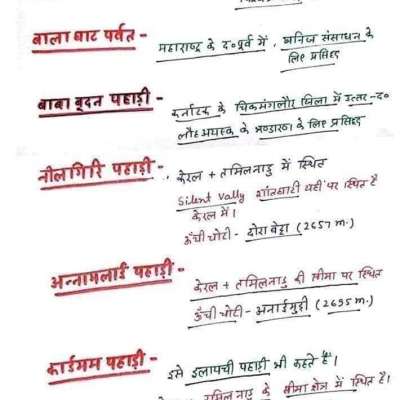 बालाघाट पर्वत - महाराष्ट्र के द०पूर्व में, खनिज संसाधन के
लिए प्रसिद्ध
बाबा बूदन पहाड़ी - कर्नाटक के चिकमंगलौर जिला में उत्तर-द०
लौह अयस्क के भण्डारण के लिए प्रसिद्ध
नीलगिरि पहाड़ी - केरल + तमिलनाडु में स्थित
Silent Vally शांतघाटी यहीं पर स्थित है
केरल में।
ऊँची चोटी - दोदा बेट्टा (2657 m.)
अन्नामलाई पहाड़ी - केरल + तमिलनाडु की सीमा पर स्थित
ऊँची चोटी - अनाईमुडी (2695 m.)
कार्डमम पहाड़ी - इसे इलायची पहाड़ी भी कहते हैं।
तमिल नाडु के सीमा क्षेत्र में स्थित है।